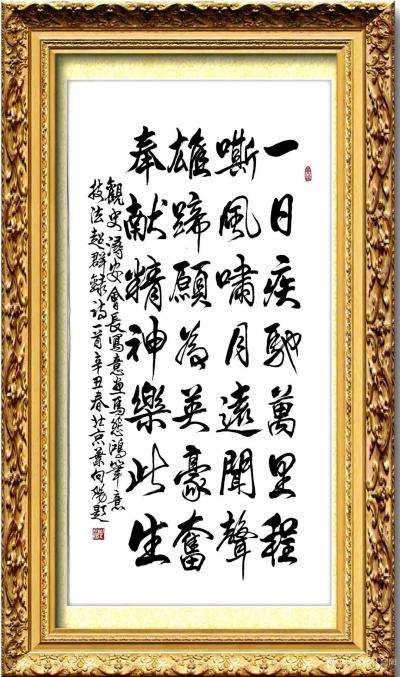 一日疾馳萬里程
嘶風嘯月遠聞聲
雄蹄願為英豪奮
奉獻精神樂此生
觀史安會長寫意畫馬態鴻筆意
技法超群詩一首辛丑春北京葉向陽題